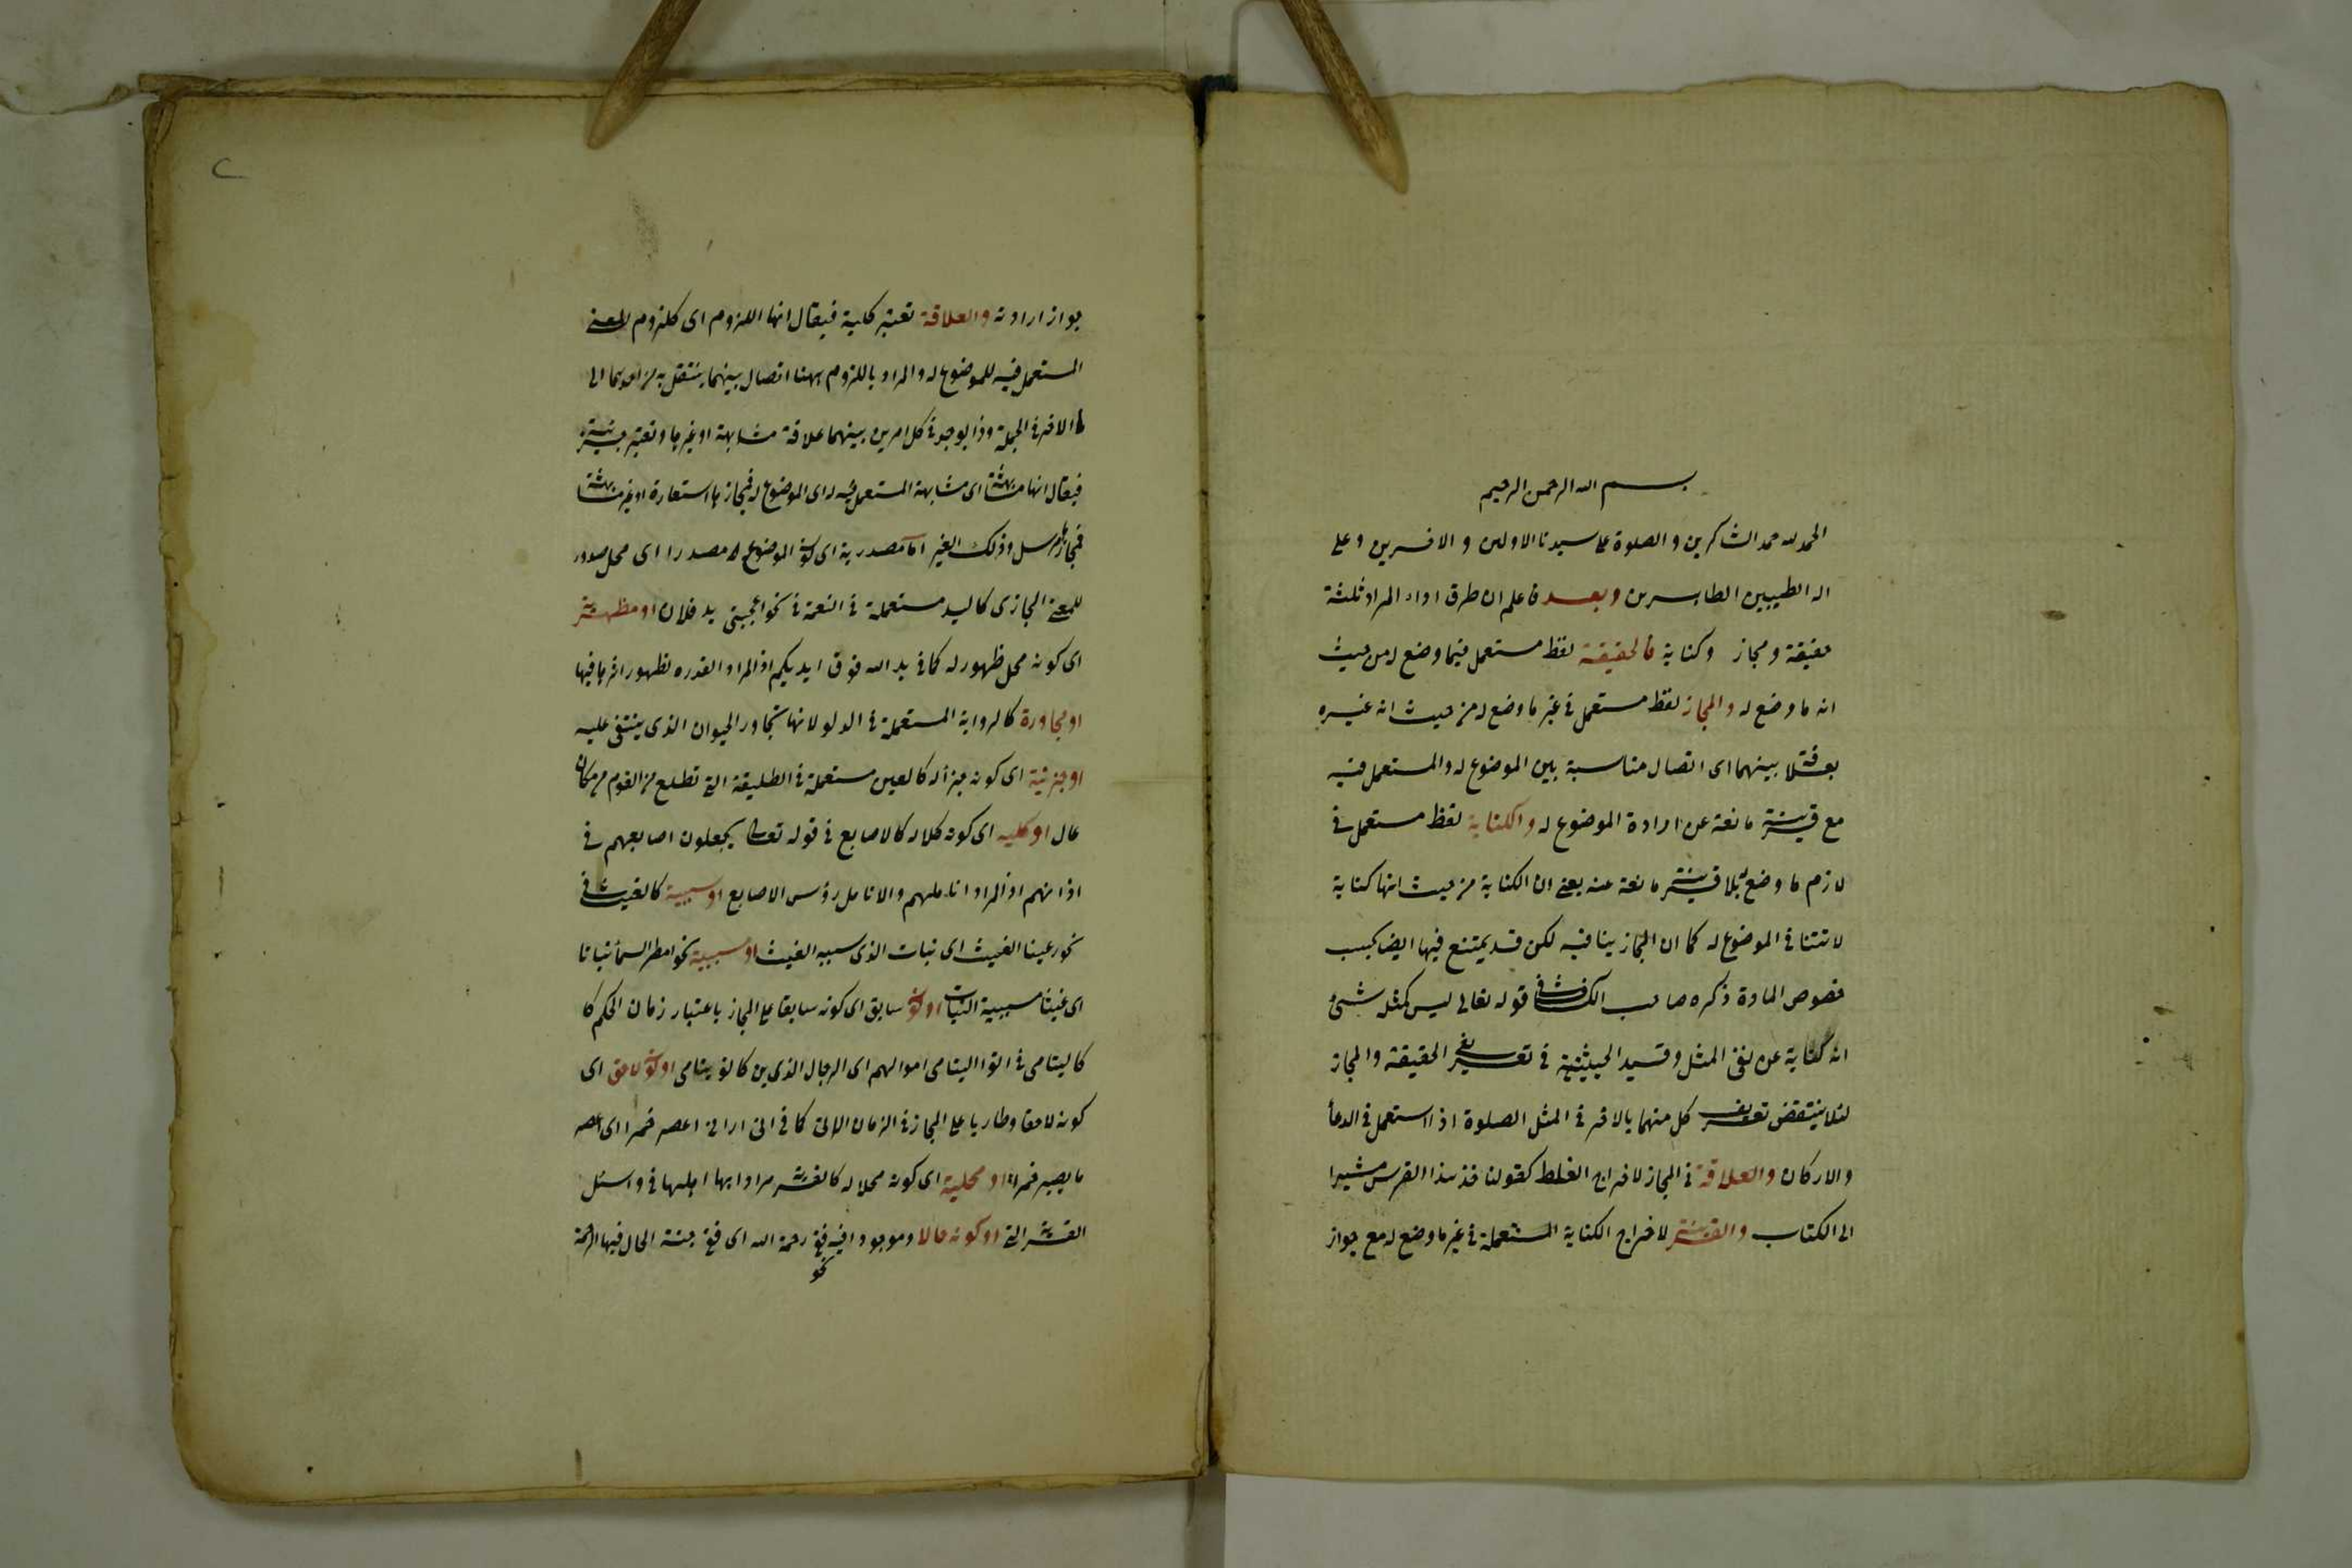 بسم الله الرحمن الرحيم
الحمد لله حمد الشاكرين والصلوة على سيدنا الاولين والاخرين وعلى
اله الطيبين الطاهرين وبعد فاعلم ان طرق اداء المراد ثلثة
حقيقة ومجاز وكناية فالحقيقة لفظ مستعمل فيما وضع له من حيث
انه ما وضع له والمجاز لفظ مستعمل في غير ما وضع له من حيث انه غيره
بعلاقة بينهما اى اتصال مناسبة بين الموضوع له والمستعمل فيه
مع قرينة مانعة عن ارادة الموضوع له والكناية لفظ مستعمل في
لازم ما وضع له بلا قرينة مانعة عنه يعنى ان الكناية من حيث انها كناية
لا تنافى الموضوع له كما ان المجاز ينافيه لكن قد يمتنع فيها ايضا بحسب
خصوص المادة ذكره صاحب الكشاف في قوله تعالى ليس كمثله شئ
انه كناية عن نفى المثل وقيد الحيثية في تعريفى الحقيقة والمجاز
لئلا ينتقض تعريف كل منهما بالاخر في المثل الصلوة اذا استعمل في الدعأ
والاركان والعلاقة في المجاز لاخراج الغلط كقولنا خذ هذا الفرس مشيرا
الى الكتاب والقرينة لاخراج الكناية المستعملة في غير ما وضع له مع جواز
جواز ارادته والعلاقة تعتبر كلية فيقال انها اللزوم اى كلزوم المعنى
المستعمل فيه للموضوع له والمراد باللزوم ههنا اتصال بينهما ينتقل به من احدهما الى
الاخر في الجملة وذا يوجد في كل امرين بينهما علاقة مشابهة او غيرها وتعتبر جزئية
فيقال انها مشابهة اى مشابهة المستعمل فيه له اى الموضوع له فمجازها استعارة او غير مشابهة
فمجازها مرسل وذلك الغير اما مصدرية اى كون الموضوع له مصدرا اى محل صدور
للمعنى المجازى كاليد مستعملة في النعمة في نحو اعجبنى يد فلان او مظهرية
اى كونه محل ظهور له كما في يد الله فوق ايديكم اذ المراد القدره لظهور اثرها فيها
او مجاورة كالرواية المستعملة في الدلو لانها تجاور الحيوان الذى يستقى عليه
او جزئية اى كونه جزأ له كالعين مستعملة في الطليقة التى تطلع من القوم من مكان
عال او كليه اى كونه كلا له كالاصابع في قوله تعالى يجعلون اصابعهم فى
اذانهم اذ المراد اناملهم والانامل رؤس الاصابع او سببية كالغيث في
نحو رعينا الغيث اى نبات الذى سببه الغيث او مسببية نحو امطر السمأ نباتا
اى غيثا مسببية النبات او كونه سابق اى كونه سابقا على المجاز باعتبار زمان الحكم كا
كاليتامى في اتوا اليتامى اموالهم اى الرجال الذين كانو يتامى او كونه لاحق اى
كونه لاحقا وطاريا على المجاز في الزمان الاتى كما في انى ارانى اعصر خمرا اى اعصر
ما يصير خمرا او محلية اى كونه محلا له كالقرية مرادا بها اهلها في واسئل
القرية التى او كونه حالا وموجودا فيه ففى رحمة الله اى ففى جنة الحال فيها الرحمة
نحو